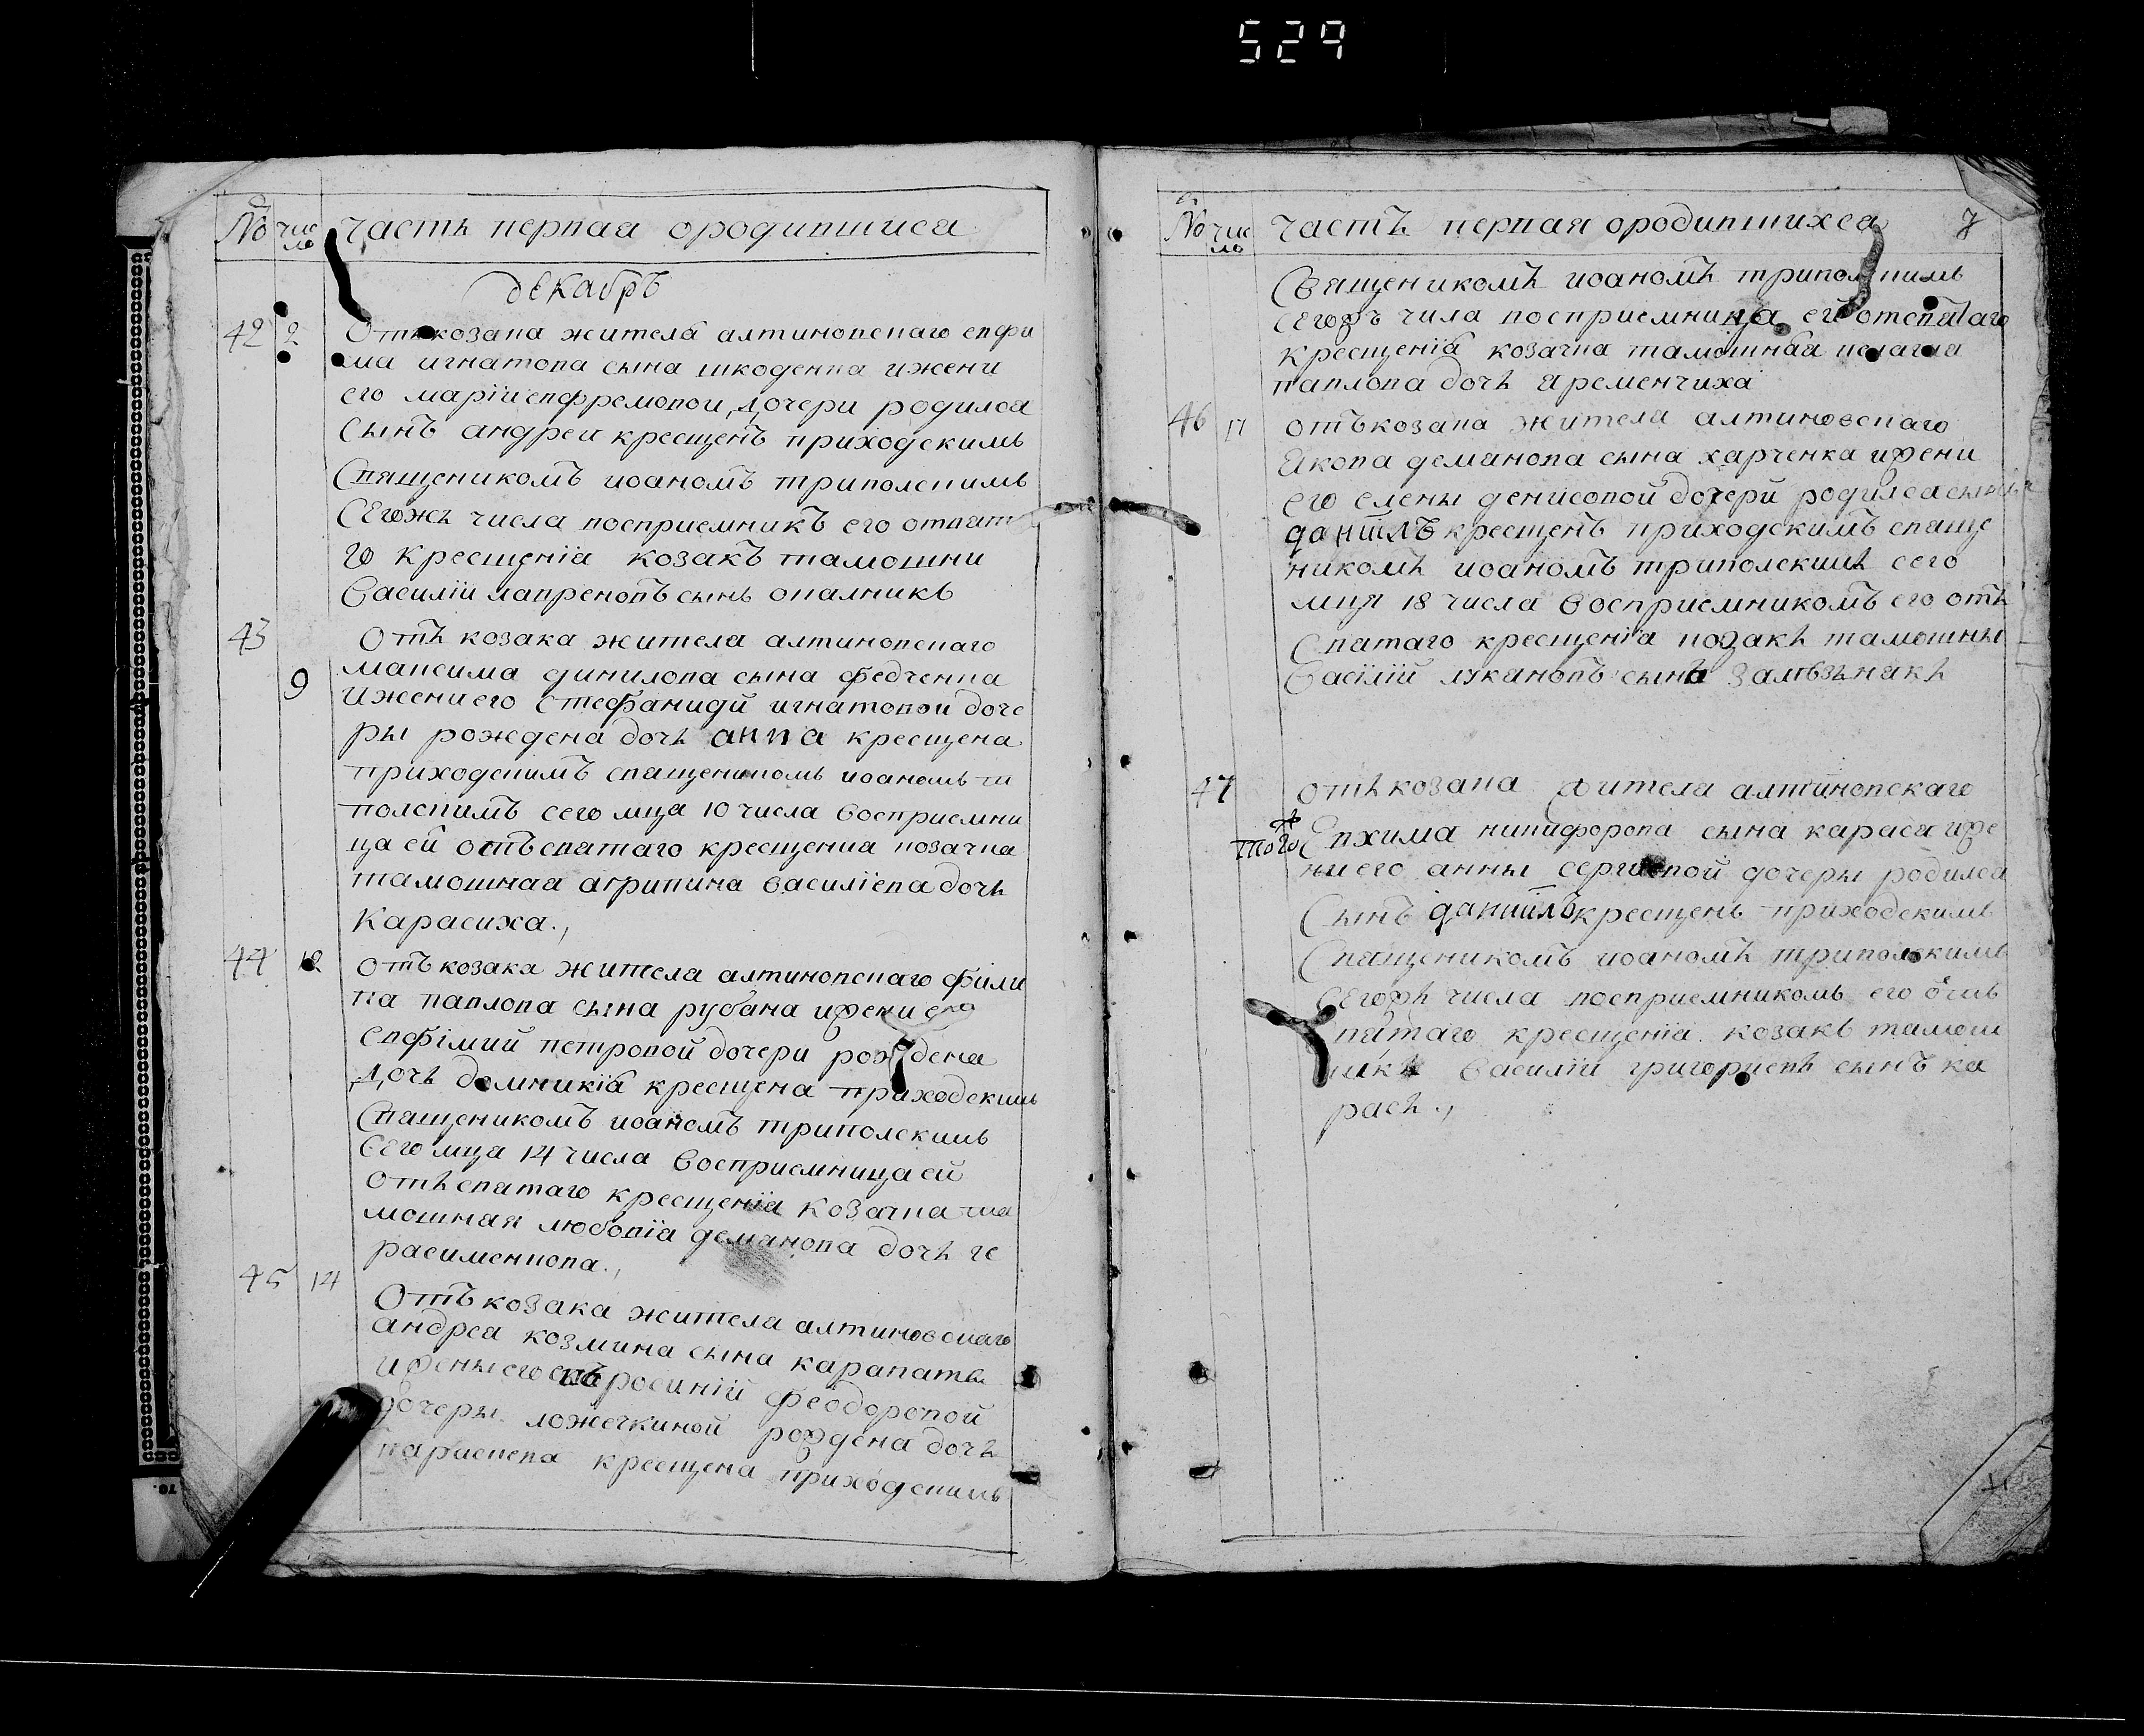 529
№ число часть первая ородившися
декабрь
42 2 Отъ козака жителя алтиновскаго евфи
ма игнатова сына шкоденка ижени
его маріи евфремовои дочери родился
Сынъ андреи крещенъ приходскимъ
Священикомъ иоаномъ триполскимъ
Сегожъ числа восприемникъ его отсвят
го крещенія козакъ тамошни
Василіи лавреновъ сынъ
43 Отъ козака жителя алтиновскаго
9 максима динилова сына федченка
ижени его Стефаниди игнатовои доче
ры рождена дочь анна крещена
приходскимъ священикомъ иоаномъ три
полскимъ сего мца 10 числа восприемни
ца ей отъ святаго крещения козачка
тамошная агрипина василіева дочь
Карасиха.,
44 12 отъ козака жителя алтиновскаго фили
па павлова сына рубана ижени его
евфіміи петровой дочери рождена
дочь домникія крещена приходскимъ
Священикомъ иоаномъ триполскимъ
Сего мца 14 числа восприемница ей
отъ святаго крещенія козачка та
мошная любовія деманова дочь ге
расименкова.,
45 14 Отъ козака жителя алтиновскаго
андрея козмина сына карапаты
ижены его евфросиніи феодоровой
дочеры ложечкиной рождена дочь
параскева крещена приходскимъ
№ число часть первая ородившихся 7
Священикомъ иоаномъ триполскимъ
Сегожъ числа восприемница ей отсвятаго
крещенія козачка тамошная пелагия
павлова дочь яременчиха
46 17 отъ козака жителя алтиновскаго
Якова деманова сына харченка ижени
его елены денисовой дочери родился сынъ
даніилъ крещенъ приходскимъ свяще
никомъ иоаномъ триполскимъ сего
мця 18 числа восприемникомъ его отъ
Святаго крещенія козакъ тамошны
Василій лукановъ сынъ
47 отъ козака жителя алтиновскаго
того ж Евхима никифорова сына карася иже
ни его анны сергиевой дочеры родился
Сынъ даніилъ крещенъ приходскимъ
Священикомъ иоаномъ триполскимъ
Сегожъ числа восприемникомъ его отъ
святаго крещенія козакъ тамош
никъ Василіи григориевъ сынъ ка
рась.,